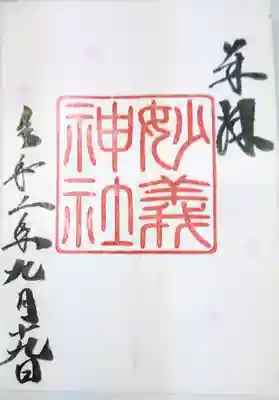 奉拝
妙義
神社
令和二年九月十九日